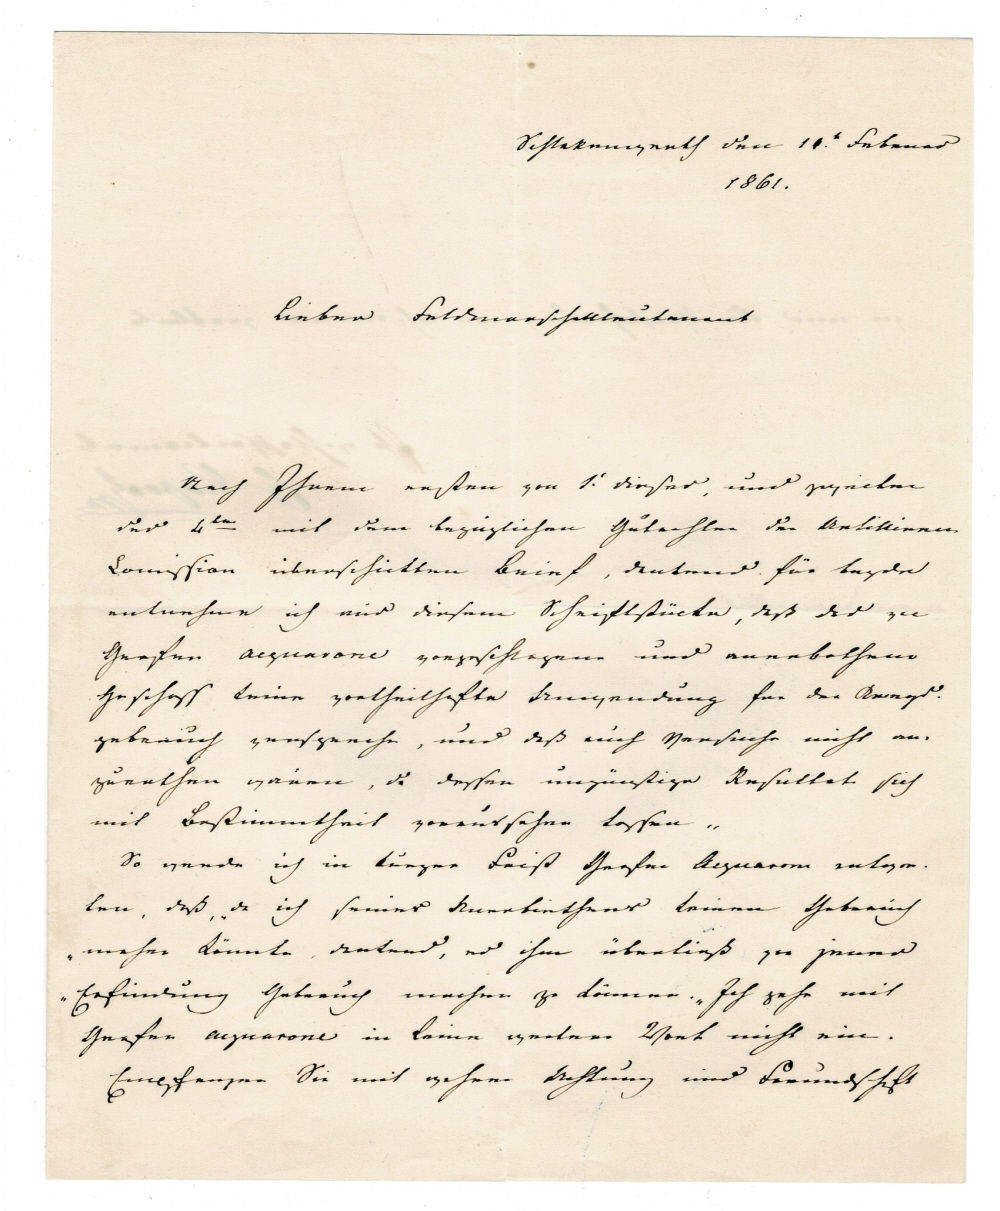 Schlakenwerth den 10.t Februar
1861.
Lieber Feldmarschallleutenant
Nach Ihrem ersten von 1.t dieser, und zweiten
der 4ten mit dem bezüglichen Gutachten der Artillerie
Comission überschikten Brief, dankend für beyde
entnehme ich aus diesem Schriftstücke, daß das von
Grafen Acquarone vorgeschlagene und anerbothene
Geschoss keine vortheilhafte Anwendung für den Armee
gebrauch verspreche, und daß auch Versuche nicht an-
zurathen wären, da dessen ungünstige Resultat sich
mit Bestimmtheit voraussehen lassen „
So werde ich in kurzer Frist Grafen Acquarone antwor-
ten, daß, „da ich seines Anerbiethens keinen Gebrauch
„machen könnte dankend, es ihm überließ von jener
„Erfindung Gebrauch machen zu können. „Ich gehe mit
Grafen Acquarone in keine weitere nicht ein.
Empfangen Sie mit wahrer Achtung und Freundschaft